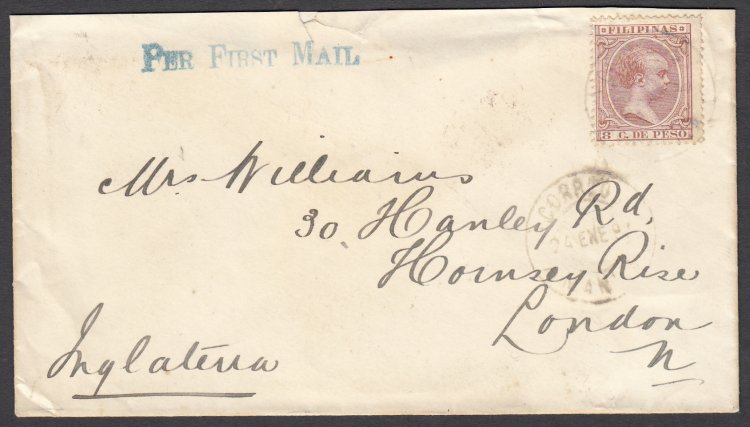 PER FIRST MAIL
FILIPINAS
8 C. DE PESO
Mrs Williams
30 Hanley Rd,
Hornsey Rise
London
N
Inglaterra
24 ENE